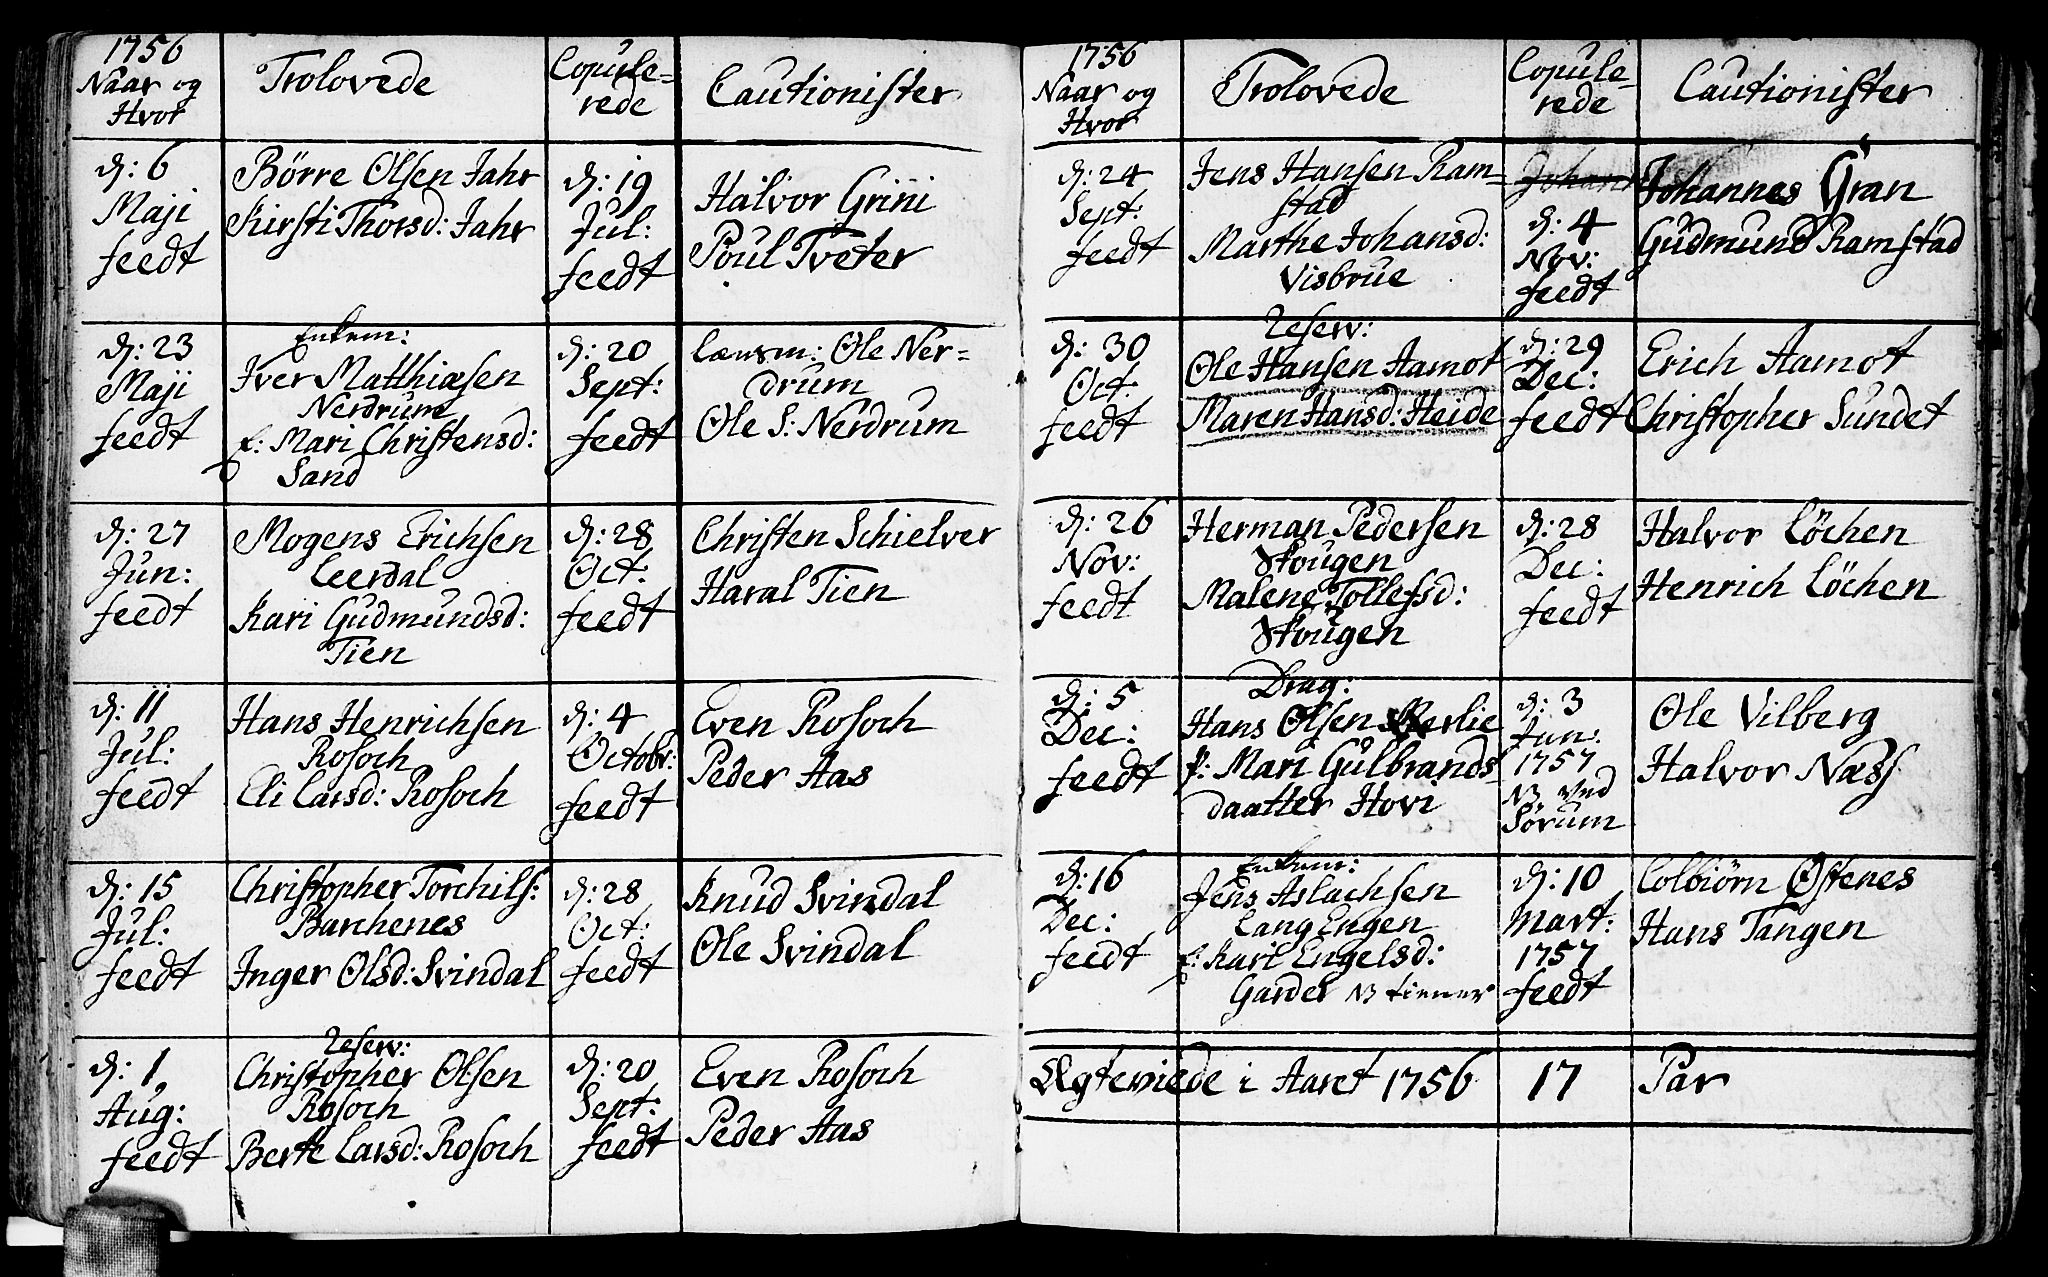 1756
Naar og
Hvor
Trolovede
Copule-
rede
Cautionister
d: 6
Maji
feedt
Børre Olsen Jahr
Kirsti Thorsd: Jahr
d: 19
Jul:
feedt
Halvor Grini
Poul Tveter
d: 23
Maji
feedt
Enkem:
Iver Matthiæsen
Nerdrum
f: Mari Christensd:
Sand
d: 20
Sept:
feedt
Lænsm: Ole Ner-
drum
Ole S: Nerdrum
d: 27
Jun:
feedt
Mogens Erichsen
Leerdal
Kari Gudmundsd:
Tien
d: 28
Oct:
feedt
Christen Schielver
Haral Tien
d: 11
Jul:
feedt
Hans Henrichsen
Rosoch
Eli Larsd: Rosoch
d: 4
Octobr:
feedt
Even Rosoch
Peder Aas
d: 15
Jul:
feedt
Christopher Torchils:
Barchenes
Inger Olsd: Svindal
d: 28
Oct:
feedt
Knud Svindal
Ole Svindal
d: 1
Aug:
feedt
Reserv:
Christopher Olsen
Rosoch
Berte Larsd: Rosoch
d: 20
Sept:
feedt
Even Rosoch
Peder Aas
1756
Naar og
Hvor
Trolovede
Copule-
rede
Cautionister
d: 24
Sept:
feedt
Jens Hansen Ram-
stad
Marthe Johansd:
Visbrue
Johan
d: 4
Nov:
feedt
Johannes Gran
Gudmund Ramstad
d: 30
Oct:
feedt
Reserv:
Ole Hansen Aamot
Maren Hansd: Heide
d: 29
Dec:
feedt
Erich Aamot
Christopher Sundet
d: 26
Nov:
feedt
Herman Pedersen
Skougen
Malene Tollefsd:
Skougen
d: 28
Dec:
feedt
Halvor Löchen
Henrich Löchen
d: 5
Dec:
feedt
Drag:
Hans Olsen
P: Mari Gulbrands
daatter Hovi
d: 3
Jun:
1757
NB ved
Sørum
Ole Vilberg
Halvor Næss
d: 16
Dec:
feedt
Enkem:
Jens Aslachsen
Lang Engen
f: Kari Engelsd:
Garder NB tiener
d: 10
Mart:
1757
feedt
Colbiörn Østenes
Hans Tangen
Ægteviede i Aaret 1756 17 Par